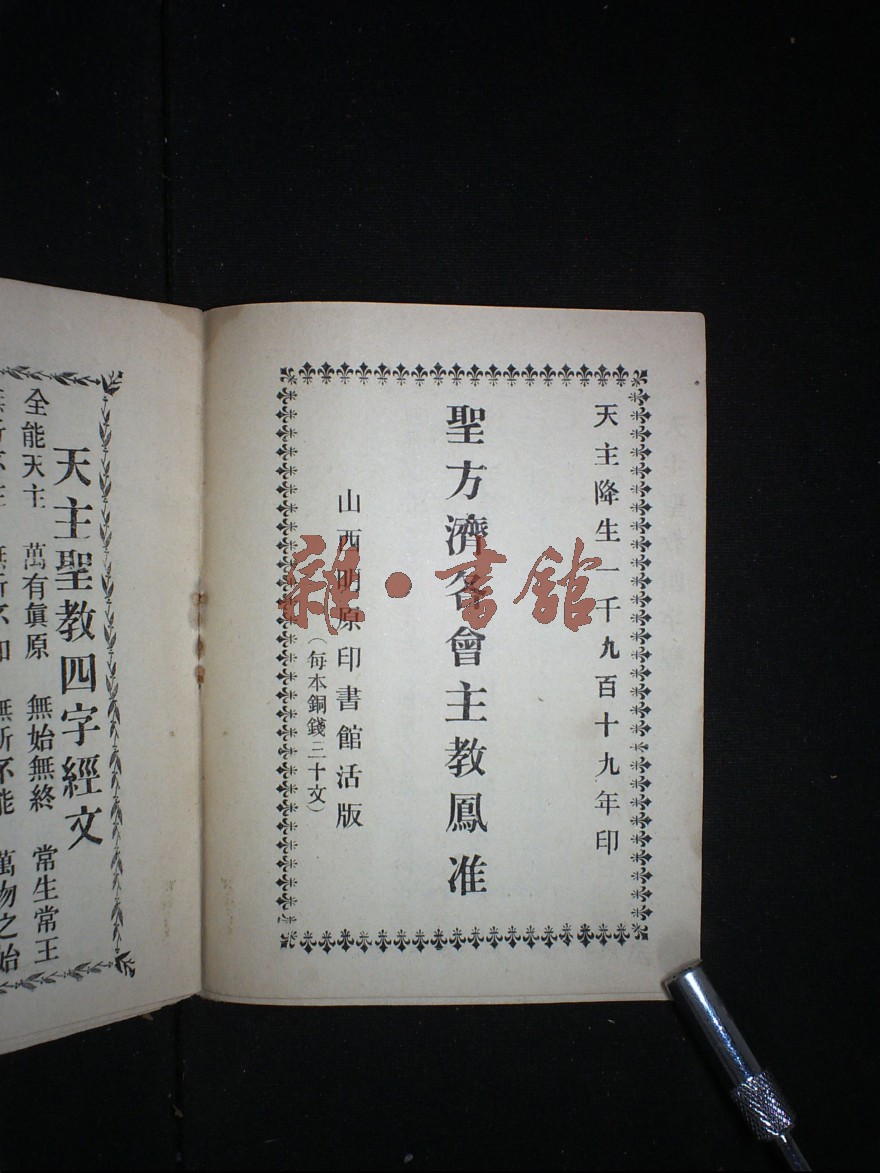 天主降生一千九百十九年印
聖方濟各會主教鳳准
山西明原印書館活版
（每本銅錢三十文）
天主聖教四字經文
全能天主　萬有眞原　無始無終　常生常王
無所不在　無所不知　無所不能　萬物之始
雜·書館